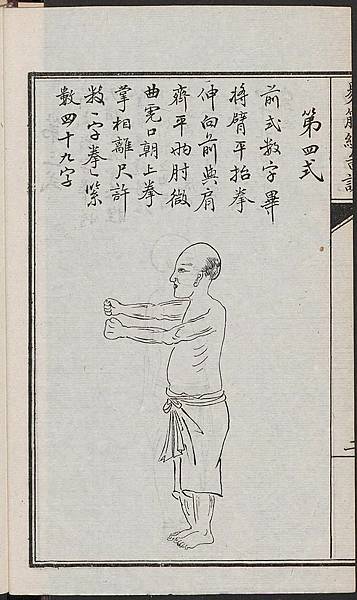 第四式
前式数字畢
將臂平抬拳
伸向前與肩
齊平两肘微
曲虎口朝上拳
掌相離尺許
数一字拳一緊
数四十九字
易筋經